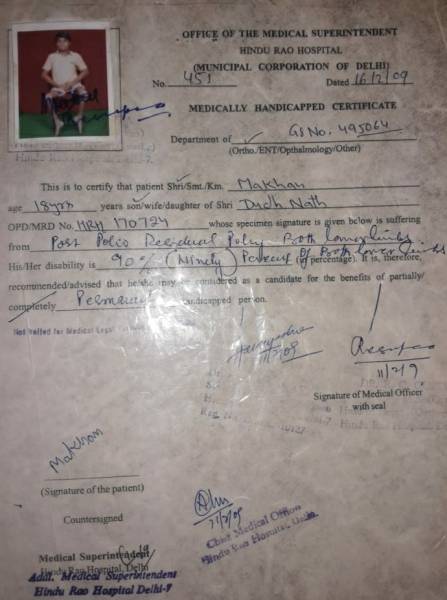 OFFICE OF THE MEDICAL SUPERINTENDENT
HINDU RAO HOSPITAL
(MUNICIPAL CORPORATION OF DELHI)
No. 451 Dated 16/2/09
MEDICALLY HANDICAPPED CERTIFICATE
GS No. 495064
Department of
(Ortho./ENT/Opthalmology/Other)
This is to certify that patient Shri/Smt./Km. Makhan
age 18 yrs years son/wife/daughter of Shri Dudh Nath
OPD/MRD No. HRH 170724 whose specimen signature is given below is suffering
from Post Polio Residual Polio Both lower limbs
His/Her disability is 90% (Ninety) Percent Of Both lower limbs (in percentage). It is, therefore,
recommended/advised that he/she may be considered as a candidate for the benefits of partially/
completely Permanent handicapped person.
Not Valied for Medical Legal
11/2/09
11/2/9
Signature of Medical Officer
with seal
Makhan
(Signature of the patient)
Countersigned
11/2/09
Chief Medical Officer
Hindu Rao Hospital, Delhi
Medical Superintendent
Hindu Rao Hospital, Delhi
Addl. Medical Superintendent
Hindu Rao Hospital Delhi-7